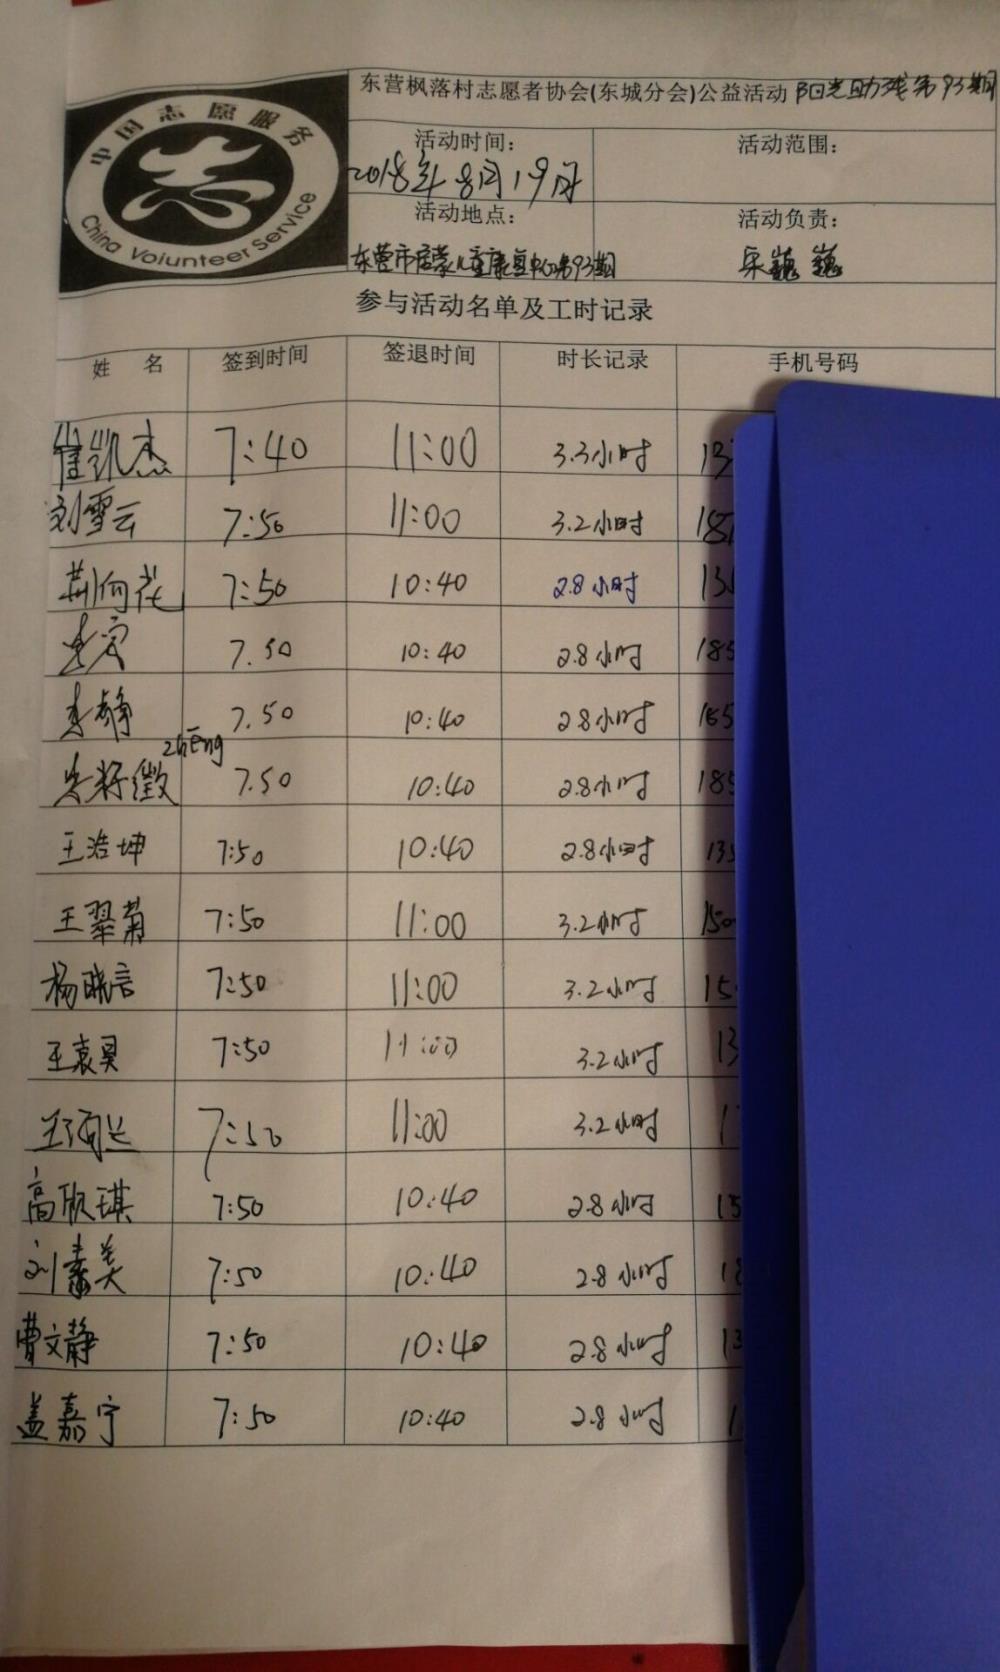 中国志愿服务
China Voiunteer Service
东营枫落村志愿者协会(东城分会)公益活动 阳光助残第93期
活动时间: 活动范围:
2018年8月19日
活动地点: 活动负责:
东营市启蒙儿童康复中心第93期 巍巍
参与活动名单及工时记录
姓 名 签到时间 签退时间 时长记录 手机号码
崔凯杰 7:40 11:00 3.3小时 13
刘雪云 7:50 11:00 3.2小时 187
荆向花 7:50 10:40 2.8小时 13
7.50 10:40 2.8小时 185
李静 7.50 10:40 2.8小时 185
zhēng
7.50 10:40 2.8小时 185
王浩坤 7:50 10:40 2.8小时 135
王翠菊 7:50 11:00 3.2小时 150
杨晓言 7:50 11:00 3.2小时 15
王袁昊 7:50 11:00 3.2小时 13
7:50 11:00 3.2小时 1
高欣琪 7:50 10:40 2.8小时 15
刘素美 7:50 10:40 2.8小时 18
曹文静 7:50 10:40 2.8小时 13
盖嘉宁 7:50 10:40 2.8小时 1